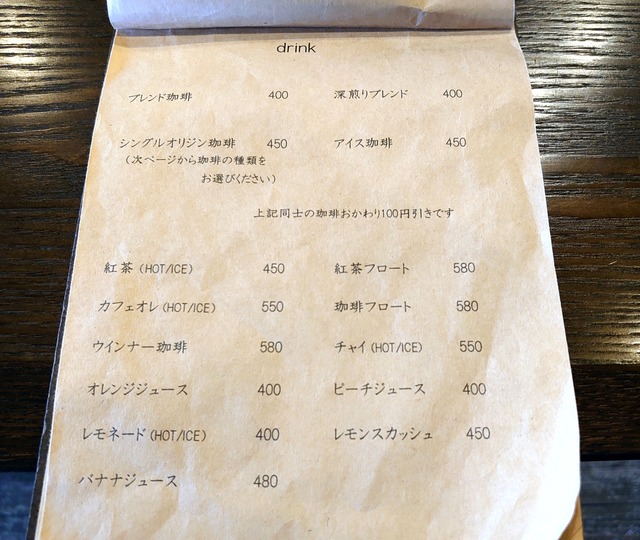 drink
ブレンド珈琲 400 深煎りブレンド 400
シングルオリジン珈琲 450 アイス珈琲 450
(次ページから珈琲の種類を
お選びください)
上記同士の珈琲おかわり100円引きです
紅茶 (HOT/ICE) 450 紅茶フロート 580
カフェオレ (HOT/ICE) 550 珈琲フロート 580
ウインナー珈琲 580 チャイ (HOT/ICE) 550
オレンジジュース 400 ピーチジュース 400
レモネード (HOT/ICE) 400 レモンスカッシュ 450
バナナジュース 480